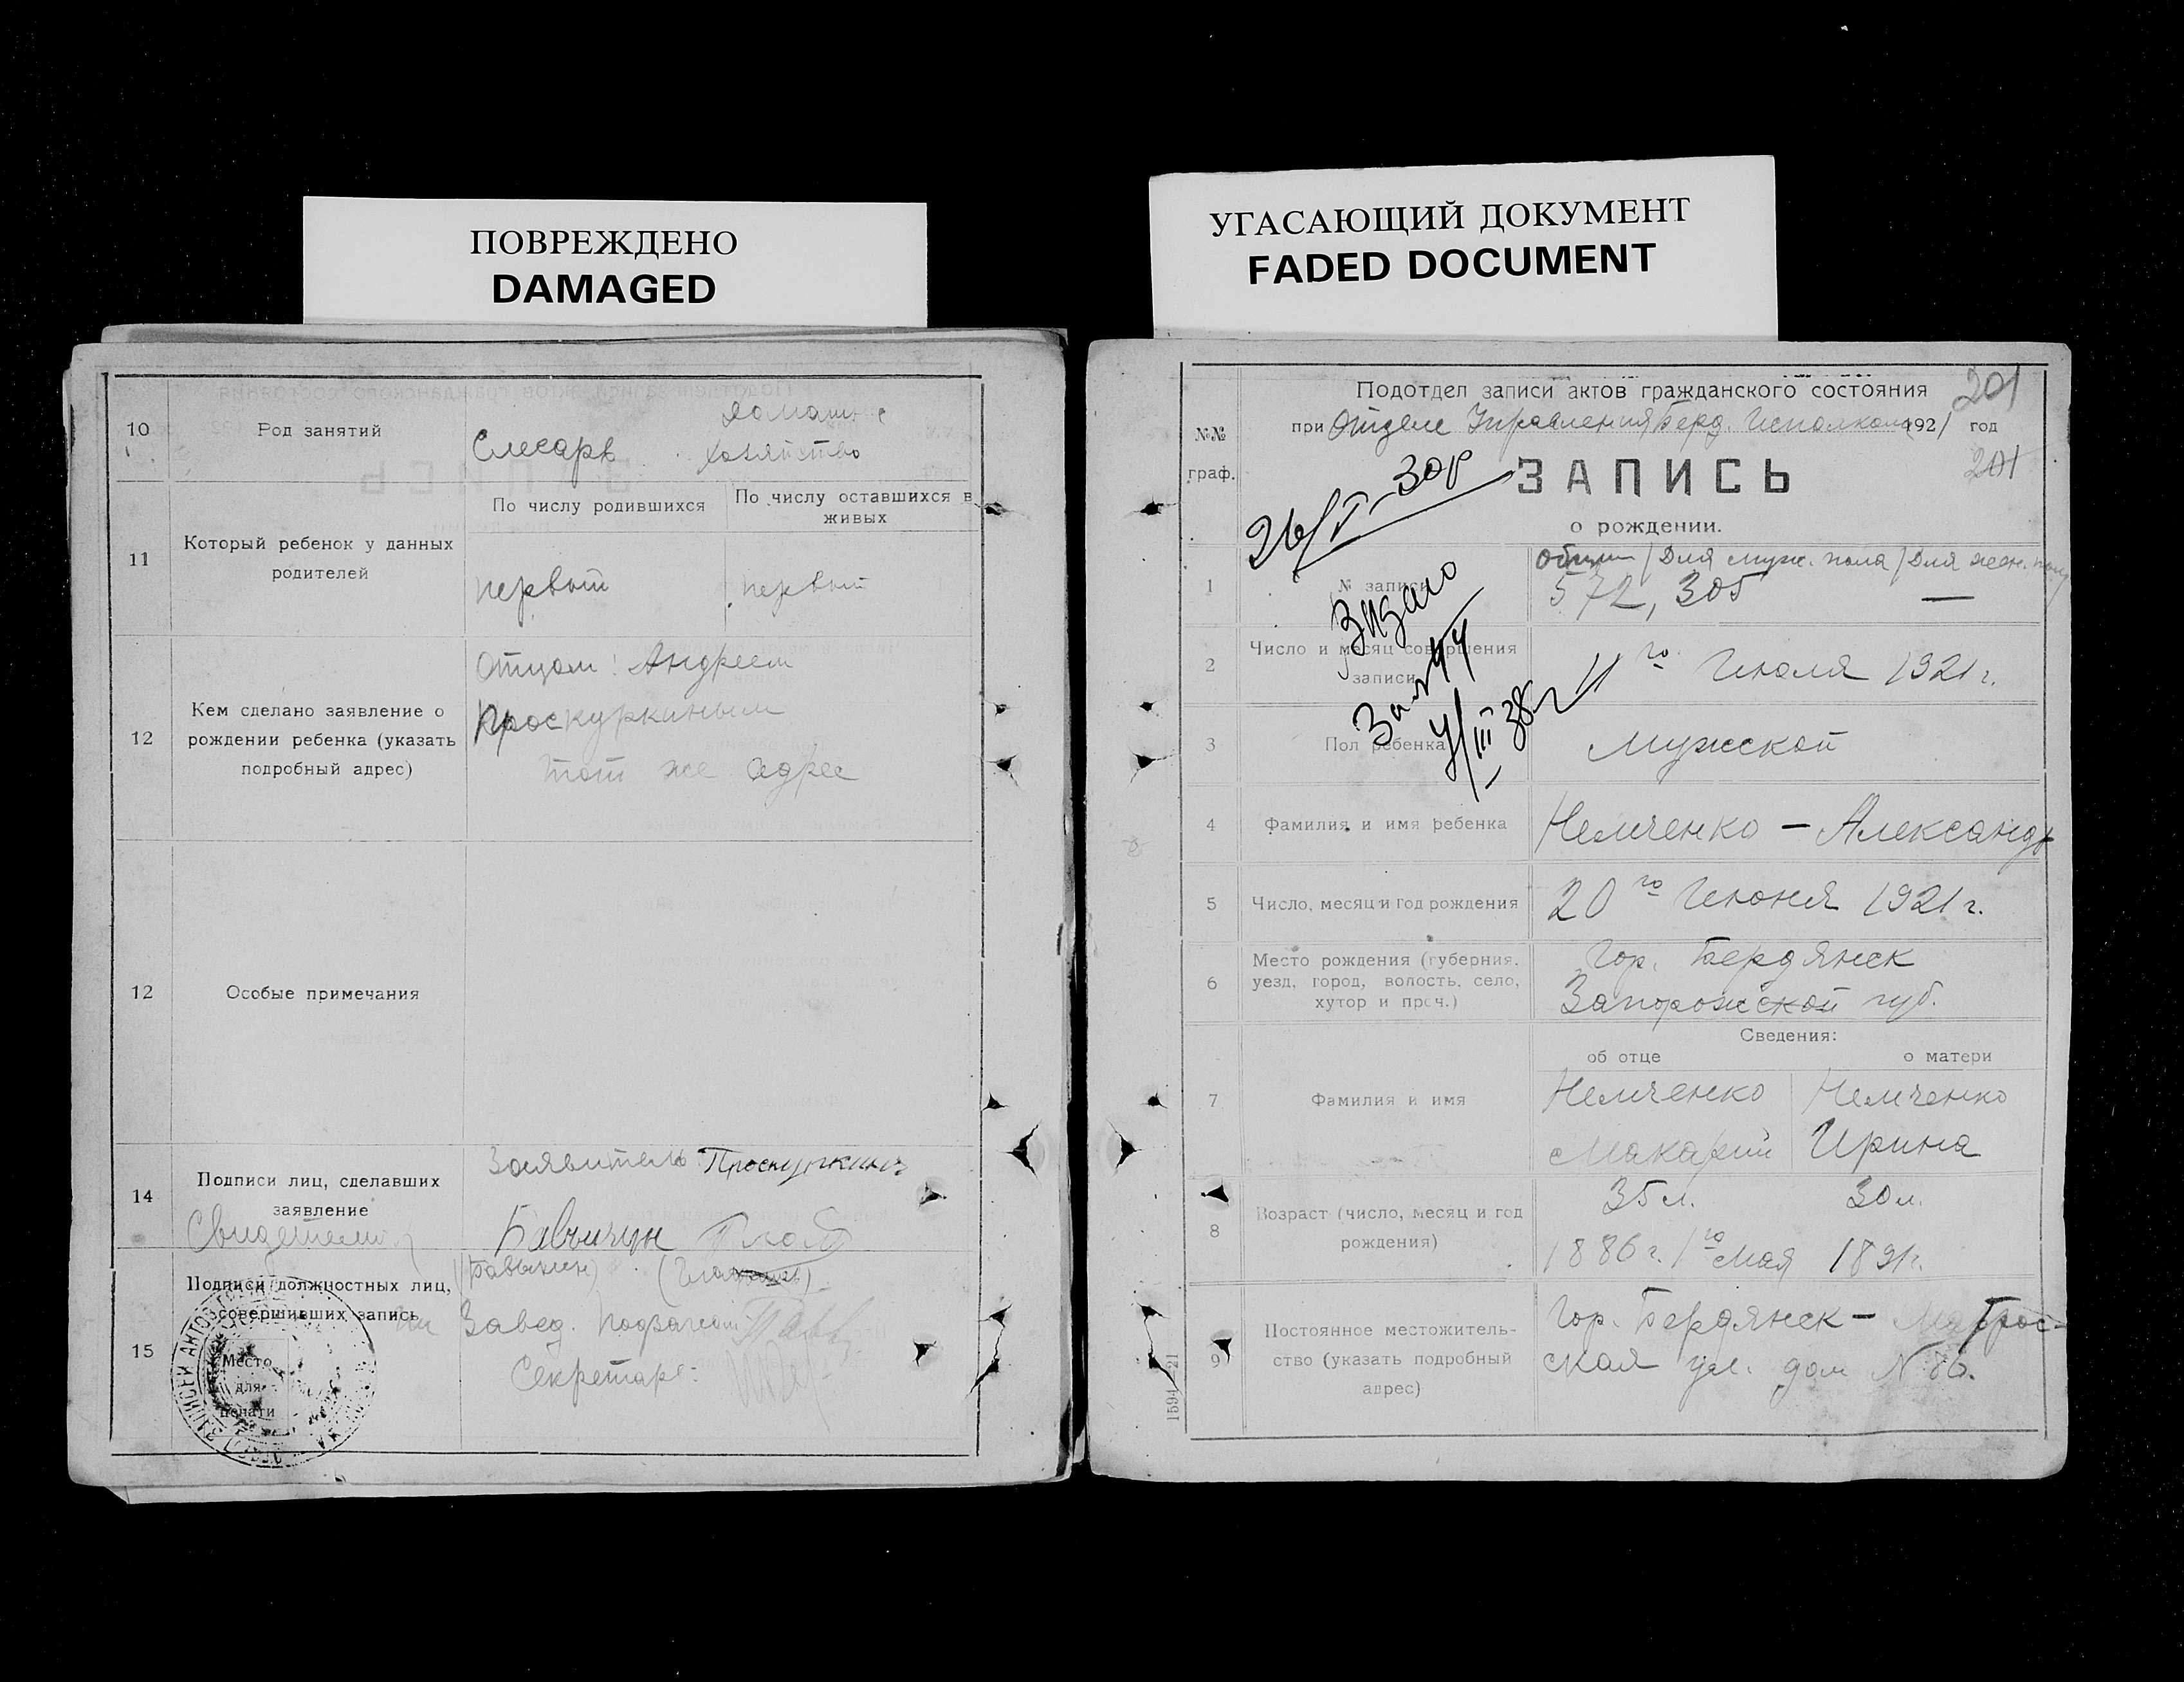 ПОВРЕЖДЕНО
DAMAGED
10
Род занятий
Слесарь
домашн
хозяйство
11
Который ребенок у данных
родителей
По числу родившихся
По число оставшихся в
живых
первый
первый
12
Кем сделано заявление о
рождении ребенка (указать
подробный адрес)
Отцом: Андреем
Проскуркиным
тот же адрес
12
Особые примечания
14
Подписи лиц, сделавших
заявление
Свидетели
Заявитель Проскуркин
15
Подписи должностных лиц,
совершивших запись
Место
для
печати
Завед.
Секретарь:
УГАСАЮЩИЙ ДОКУМЕНТ
FADED DOCUMENT
201
Подотдел записи актов гражданского состояния
№№
граф.
при Отделе Управления Берд. Исполкома 1921 год
201
ЗАПИСЬ
о рождении.
1
№ записи
Общий / Для муж. пола / Для жен. пола
572, 305 —
2
Число и месяц совершения
записи
11го Июля 1921 г.
3
Пол ребенка
Мужской
4
Фамилия и имя ребенка
Немченко — Александр
5
Число, месяц и год рождения
20го Июня 1921 г.
6
Место рождения (губерния,
уезд, город, волость, село,
хутор и проч.)
Гор. Бердянск
Запорожской губ.
Сведения:
об отце
о матери
7
Фамилия и имя
Немченко
Макарий
Немченко
Ирина
8
Возраст (число, месяц и год
рождения)
35 л.
30 л.
1886 г. 1го Мая 1891 г.
9
Постоянное местожитель-
ство (указать подробный
адрес)
Гор. Бердянск — Матрос-
ская ул. дом № 86.